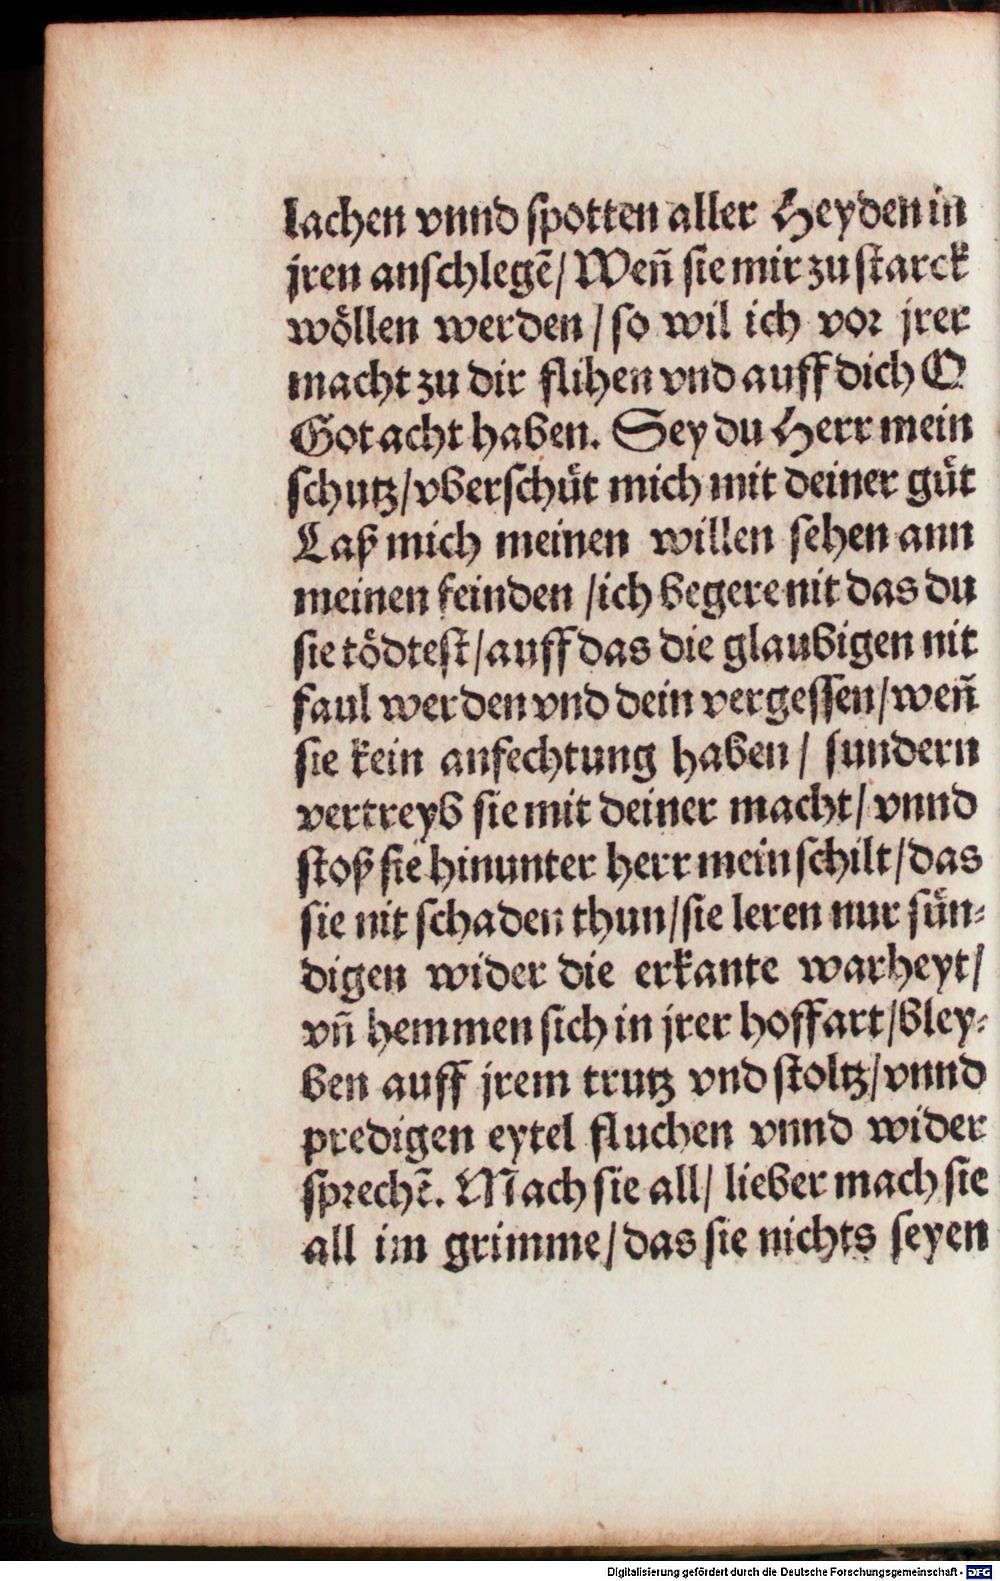 lachen vnnd spotten aller Heyden in
jren anschlegē/ Weñ sie mir zu starck
wöllen werden / so wil ich vor jrer
macht zu dir flihen vnd auff dich O
Got acht haben. Sey du Herr mein
schutz/vberschüt mich mit deiner güt
Laß mich meinen willen sehen ann
meinen feinden /ich begere nit das du
sie tödtest/auff das die glaubigen nit
faul werden vnd dein vergessen/weñ
sie kein anfechtung haben / sundern
vertreyb sie mit deiner macht/ vnnd
stoß sie hinunter herr mein schilt/das
sie nit schaden thun/sie leren nur sün-
digen wider die erkante warheyt/
vñ hemmen sich in jrer hoffart/bley-
ben auff jrem trutz vnd stoltz/vnnd
predigen eytel fluchen vnnd wider
sprechē. Mach sie all/ lieber mach sie
all im grimme/das sie nichts seyen
Digitalisierung gefördert durch die Deutsche Forschungsgemeinschaft - DFG